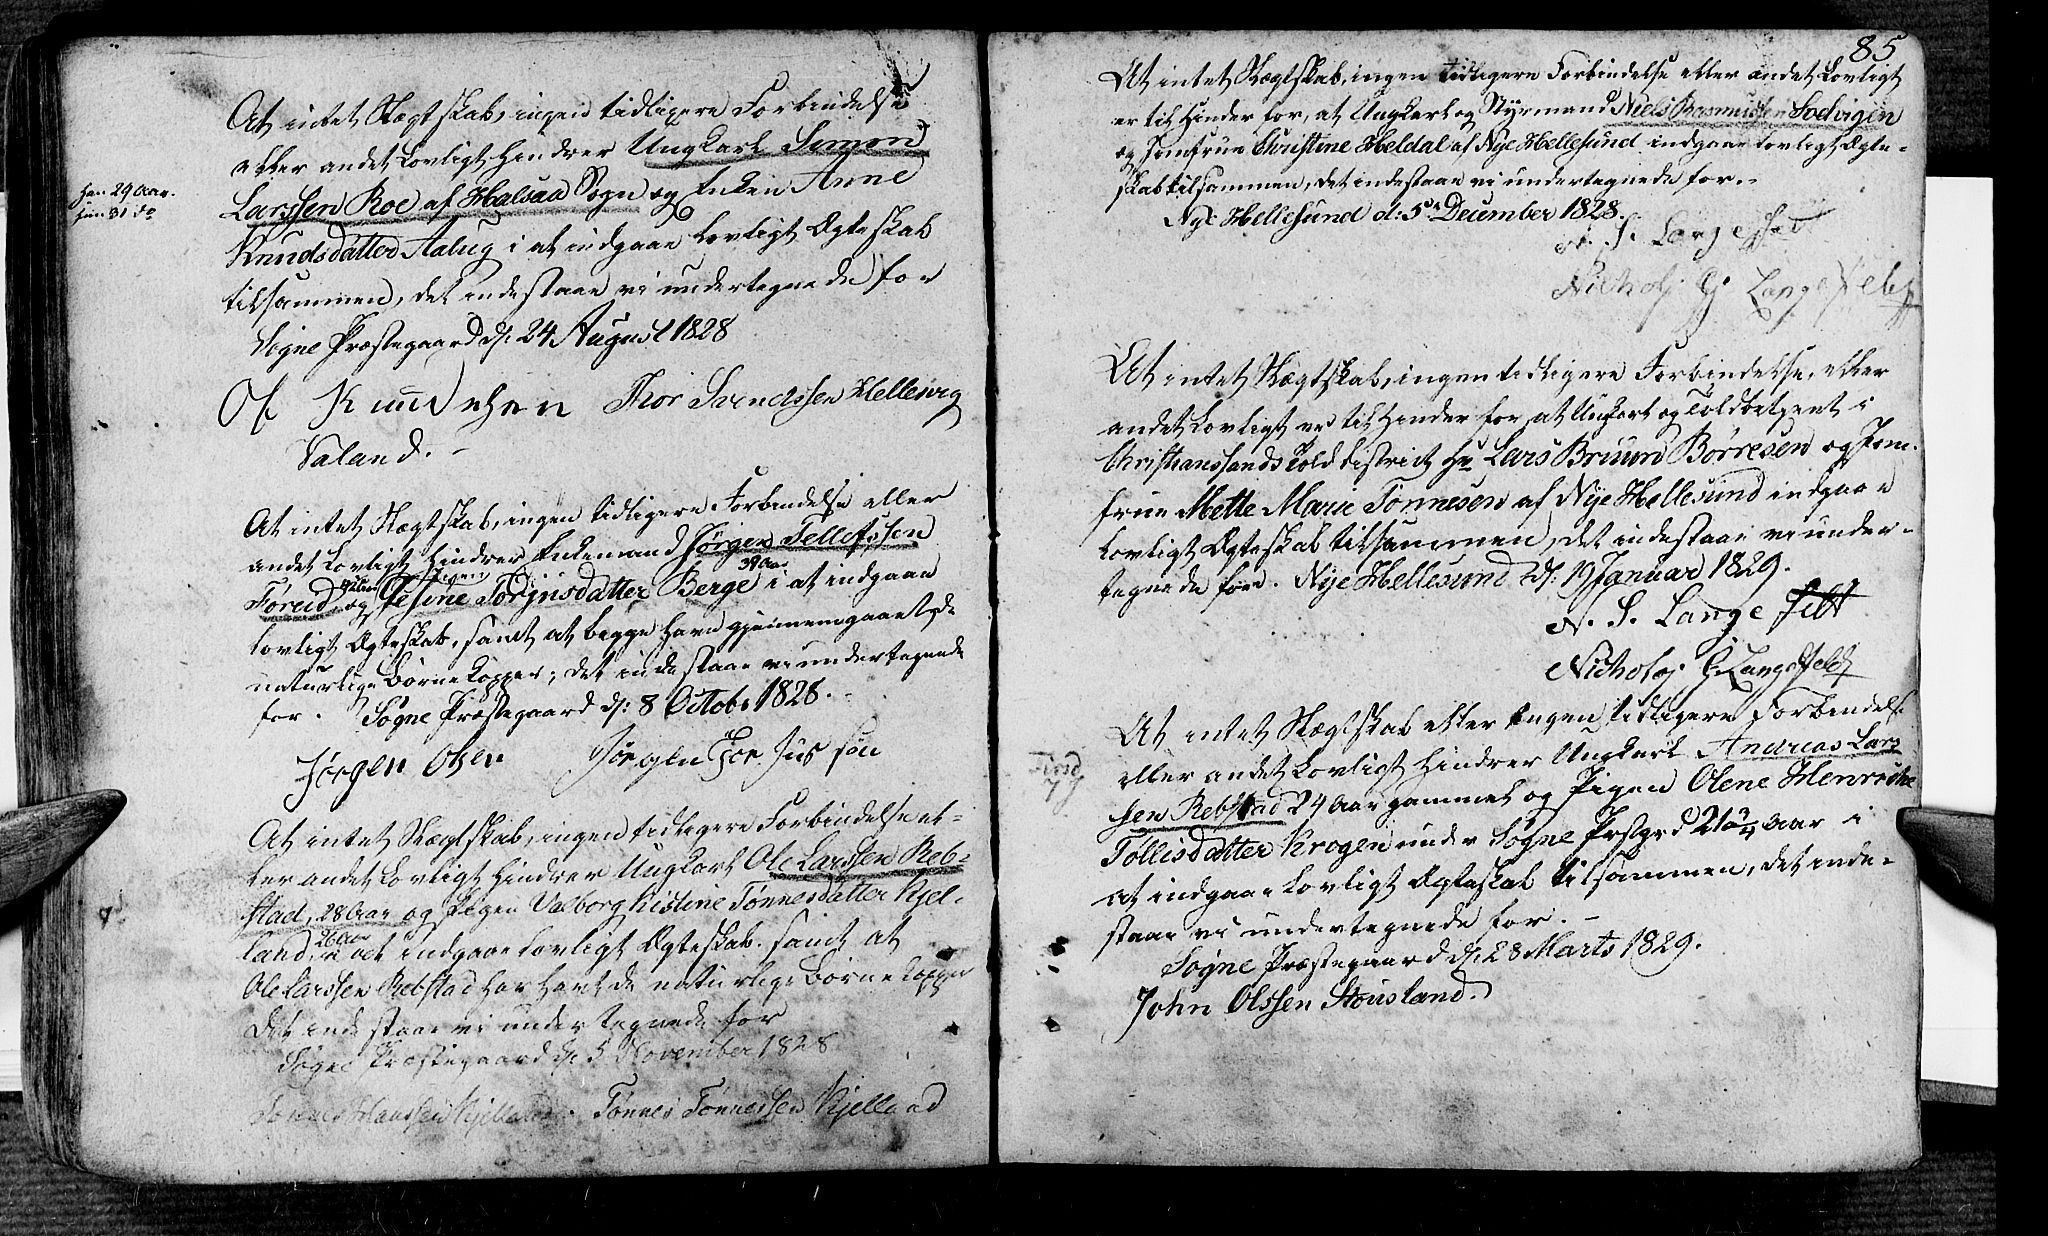 At intet Slægtskab, ingen tidligere Forbindelse
eller andet Lovligt hindrer Ungkarl Simon
Larssen Roe af Halsaa Sogn og Enken Anne
Han 29 Aar.
Hun 31 do
Knudsdatter Aalug i at indgaae Lovligt Ægteskab
tilsammen, det indestaae vi undertegnede for
Søgne Præstegaard d: 24 August 1828
Of Knudsen Thor Svendssen Hellevig
Valand.
At intet Slægtskab, ingen tidligere Forbindelse eller
andet Lovligt hindrer Enkemand Jørgen Tellefssen
Føreid og Pigen Gesine Torjusdatter Berge 39 Aar i at indgaae
lovligt Ægteskab, samt at begge have gjennemgaaet de
naturlige Børnekopper; det indestaae vi undertegnede
for. Søgne Præstegaard d: 8 Octobr 1828.
Jørgen Olsen Jørgen Tor Jus søn
At intet Slægtskab, ingen tidligere Forbindelse el-
ler andet Lovligt hindrer Ungkarl Ole Larssen Reb-
stad, 28 Aar og Pigen Valborg Kistine Tønnesdatter Kjel-
land, 26 Aar i at indgaae Lovligt Ægteskab. samt at
Ole Larssen Rebstad har havt de naturlige Børnekopper
Det indestaae vi undertegnede for
Søgne Præstegaard d: 5 November 1828
Tønnes Hanssen Kjelland. Tønnes Tønnessen Kjelland
85
At intet Slægtskab, ingen tidligere Forbindelse eller andet Lovligt
er til Hinder for, at Ungkarl og Styrmand Niels Rasmussen Lodvigen
og Jomfrue Christine Heldal af Nye Hellesund indgaae lovligt Ægte-
skab tilsammen, det indestaae vi undertegnede for.
Nye Hellesund d: 5te December 1828.
N. S. Langefeldt
Nicholj G Langefeldt
At intet Slægtskab, ingen tidligere Forbindelse, eller
andet Lovligt er til Hinder for, at Unkarl og Toldbetjent i
Christianssands Told district Hr Lars Bruun Børresen og Jom-
frue Mette Marie Tønnesen af Nye Hellesund indgaae
Lovligt Ægteskab tilsammen, det indestaae vi under-
tegnede for. Nye Hellesund d: 19 Januar 1829.
N. S. Lange feldt
Nicholj G Langefeldt
At intet Slægtskab eller ingen tidligere Forbindelse
eller andet Lovligt hindrer Ungkarl Andreas Lars
sen Rebstad 24 Aar gammel og Pigen Olene Henricke
Tøllisdatter Krogen under Søgne Prstgrd 21 3/4 Aar i
at indgaae Lovligt Ægteskab tilsammen, det inde-
staae vi undertegnede for.
Søgne Præstegaard d: 28 Marts 1829.
John Olssen Stousland.